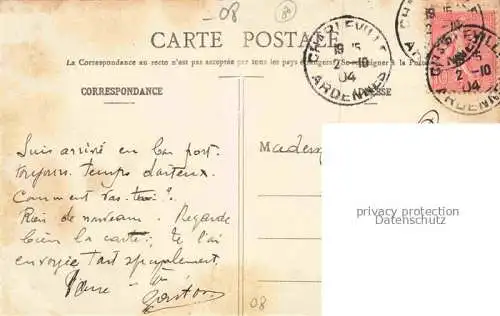 -08
CARTE POSTALE
La Correspondance au recto n'est pas acceptée par tous les pays étrangers (Se renseigner à la Poste
CORRESPONDANCE
CHARLEVILLE
19 15
2 -10
04
ARDENNES
CHARLEVILLE
15
2 -10
04
ARDENNES
Suis arrivé en bon port.
toujours temps
Comment vas-toi?
Rien de nouveau. Regarde
bien la carte; je l'ai
envoyée tout spécialement.
Gaston
Madem
privacy protection
Datenschutz
08